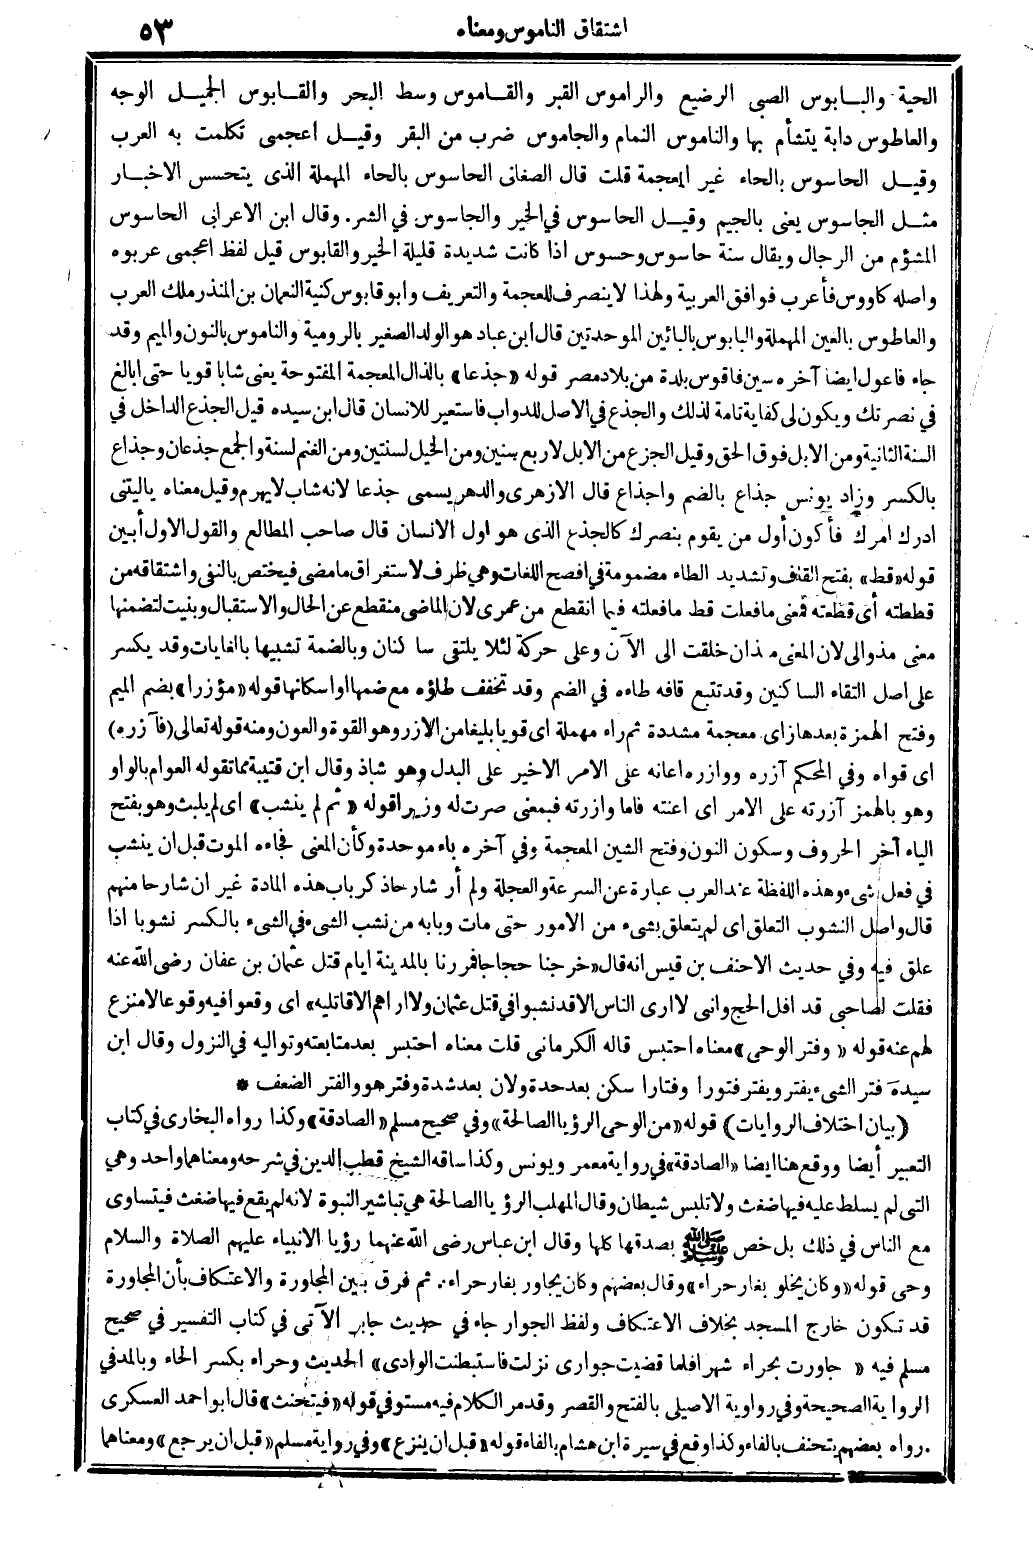 اشتقاق الناموس ومعناه ٥٣
الحية والبابوس الصبى الرضيع والراموس القبر والقاموس وسط البحر والقابوس الجميل الوجه
والعاطوس دابة يتشأم بها والناموس النمام والجاموس ضرب من البقر وقيل اعجمى تكلمت به العرب
وقيل الحاسوس بالحاء غير المعجمة قلت قال الصغانى الحاسوس بالحاء المهملة الذى يتحسس الاخبار
مثل الجاسوس يعنى بالجيم وقيل الحاسوس في الخير والجاسوس في الشر. وقال ابن الاعرابى الحاسوس
المشؤم من الرجال ويقال سنة حاسوس وحسوس اذا كانت شديدة قليلة الخير والقابوس قيل لفظ اعجمى عربوه
واصله كاووس فأعرب فوافق العربية ولهذا لا ينصرف للعجمة والتعريف وابو قابوس كنية النعمان بن المنذر ملك العرب
والعاطوس بالعين المهملة والبابوس بالبائين الموحدتين قال ابن عباد هو الولد الصغير بالرومية والناموس بالنون والميم وقد
جاء فاعول ايضا آخره سين فاقوس بلدة من بلاد مصر قوله «جذعا» بالذال المعجمة المفتوحة يعنى شابا قويا حتى ابالغ
في نصرتك ويكون لى كفاية تامة لذلك والجذع في الاصل للدواب فاستعير للانسان قال ابن سيده قيل الجذع الداخل في
السنة الثانية ومن الابل فوق الحق وقيل الجزع من الابل لاربع سنين ومن الخيل لسنتين ومن الغنم لسنة والجمع جذعان وجذاع
بالكسر وزاد يونس جذاع بالضم واجذاع قال الازهرى والدهر يسمى جذعا لانه شاب لا يهرم وقيل معناه ياليتنى
ادرك امرك فأكون أول من يقوم بنصرك كالجذع الذى هو اول الانسان قال صاحب المطالع والقول الاول أبين
قوله «قط» بفتح القاف وتشديد الطاء مضمومة في افصح اللغات وهي ظرف لاستغراق ما مضى فيختص بالنفى واشتقاقه من
قططته أى قطعته فمعنى ما فعلت قط ما فعلته فيما انقطع من عمرى لان الماضى منقطع عن الحال والاستقبال وبنيت لتضمنها
معنى مذ والى لان المعنى مذ ان خلقت الى الآن وعلى حركة لئلا يلتقى ساكنان وبالضمة تشبيها بالغايات وقد يكسر
على اصل التقاء الساكنين وقد تتبع قافه طاءه في الضم وقد تخفف طاؤه مع ضمها او اسكانها قوله «مؤزرا» بضم الميم
وفتح الهمزة بعدها زاى معجمة مشددة ثم راء مهملة اى قويا بليغا من الازر وهو القوة والعون ومنه قوله تعالى (فآزره)
اى قواه وفي المحكم آزره ووازره اعانه على الامر الاخير على البدل وهو شاذ وقال ابن قتيبة مما تقوله العوام بالواو
وهو بالهمز آزرته على الامر اى اعنته فاما وازرته فبمعنى صرت له وزيرا قوله «ثم لم ينشب» اى لم يلبث وهو بفتح
الياء آخر الحروف وسكون النون وفتح الشين المعجمة وفي آخره باء موحدة وكأن المعنى فجاءه الموت قبل ان ينشب
في فعل شىء وهذه اللفظة عند العرب عبارة عن السرعة والعجلة ولم أر شارحا ذكر باب هذه المادة غير ان شارحا منهم
قال واصل النشوب التعلق اى لم يتعلق بشىء من الامور حتى مات وبابه من نشب الشىء في الشىء بالكسر نشوبا اذا
علق فيه وفي حديث الاحنف بن قيس انه قال «خرجنا حجاجا فمررنا بالمدينة ايام قتل عثمان بن عفان رضى الله عنه
فقلت لصاحبى قد افل الحج وانى لا ارى الناس الا قد نشبوا في قتل عثمان ولا اراهم الا قاتليه» اى وقعوا فيه وقوعا لا منزع
لهم عنه قوله «وفتر الوحى» معناه احتبس قاله الكرمانى قلت معناه احتبس بعد متابعته وتواليه في النزول وقال ابن
سيدة فتر الشىء يفتر ويفتر فتورا وفتارا سكن بعد حدة ولان بعد شدة وفتر هو والفتر الضعف *
(بيان اختلاف الروايات) قوله «من الوحى الرؤيا الصالحة» وفي صحيح مسلم «الصادقة» وكذا رواه البخارى في كتاب
التعبير أيضا ووقع هنا ايضا «الصادقة» في رواية معمر ويونس وكذا ساقه الشيخ قطب الدين في شرحه ومعناهما واحد وهي
التى لم يسلط عليه فيها ضغث ولا تلبس شيطان وقال المهلب الرؤيا الصالحة هي تباشير النبوة لانه لم يقع فيها ضغث فيتساوى
مع الناس في ذلك بل خص ﷺ بصدقها كلها وقال ابن عباس رضى الله عنهما رؤيا الانبياء عليهم الصلاة والسلام
وحى قوله «وكان يخلو بغار حراء» وقال بعضهم وكان يجاور بغار حراء. ثم فرق بين المجاورة والاعتكاف بأن المجاورة
قد تكون خارج المسجد بخلاف الاعتكاف ولفظ الجوار جاء في حديث جابر الآتى في كتاب التفسير في صحيح
مسلم فيه «جاورت بحراء شهرا فلما قضيت جوارى نزلت فاستبطنت الوادى» الحديث وحراء بكسر الحاء وبالمد في
الرواية الصحيحة وفي رواوية الاصيلى بالفتح والقصر وقد مر الكلام فيه مستوفي قوله «فيتحنث» قال ابو احمد العسكرى
.رواه بعضهم يتحنف بالفاء وكذا وقع في سيرة ابن هشام بالفاء قوله «قبل ان ينزع» وفي رواية مسلم «قبل ان يرجع» ومعناهما